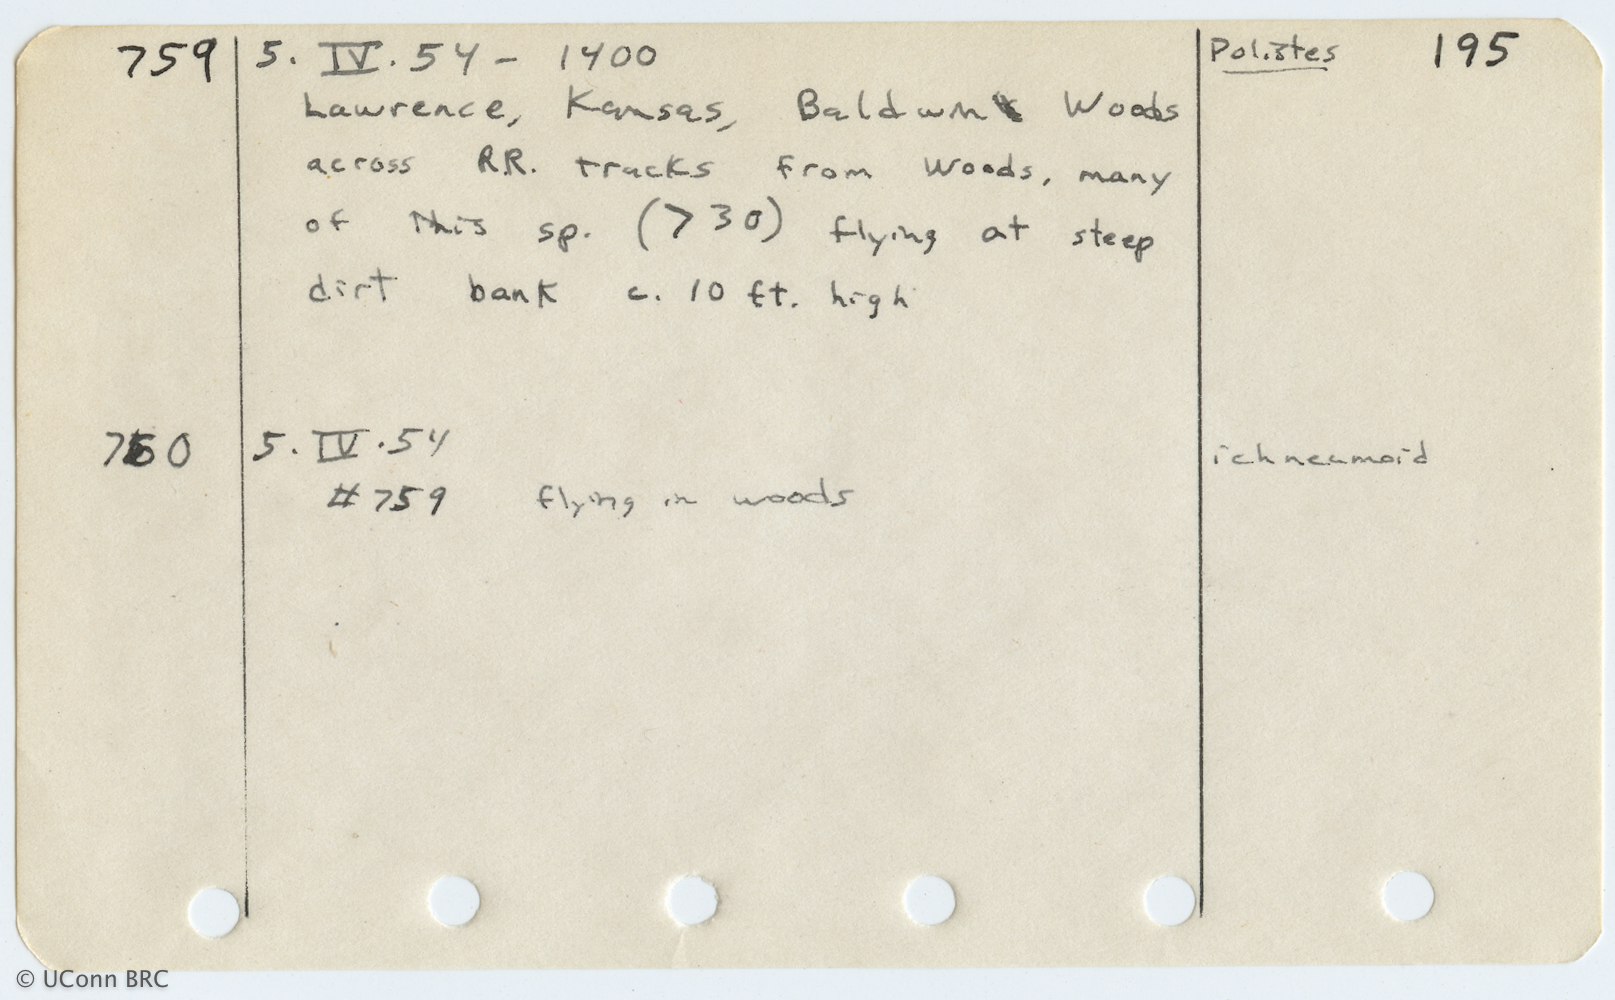 759 5. IV. 54 - 1400 Polistes 195
Lawrence, Kansas, Baldwin Woods
across R.R. tracks from Woods, many
of this sp. (730) flying at steep
dirt bank c. 10 ft. high
760 5. IV. 54 ichneumoid
#759 flying in woods
© UConn BRC